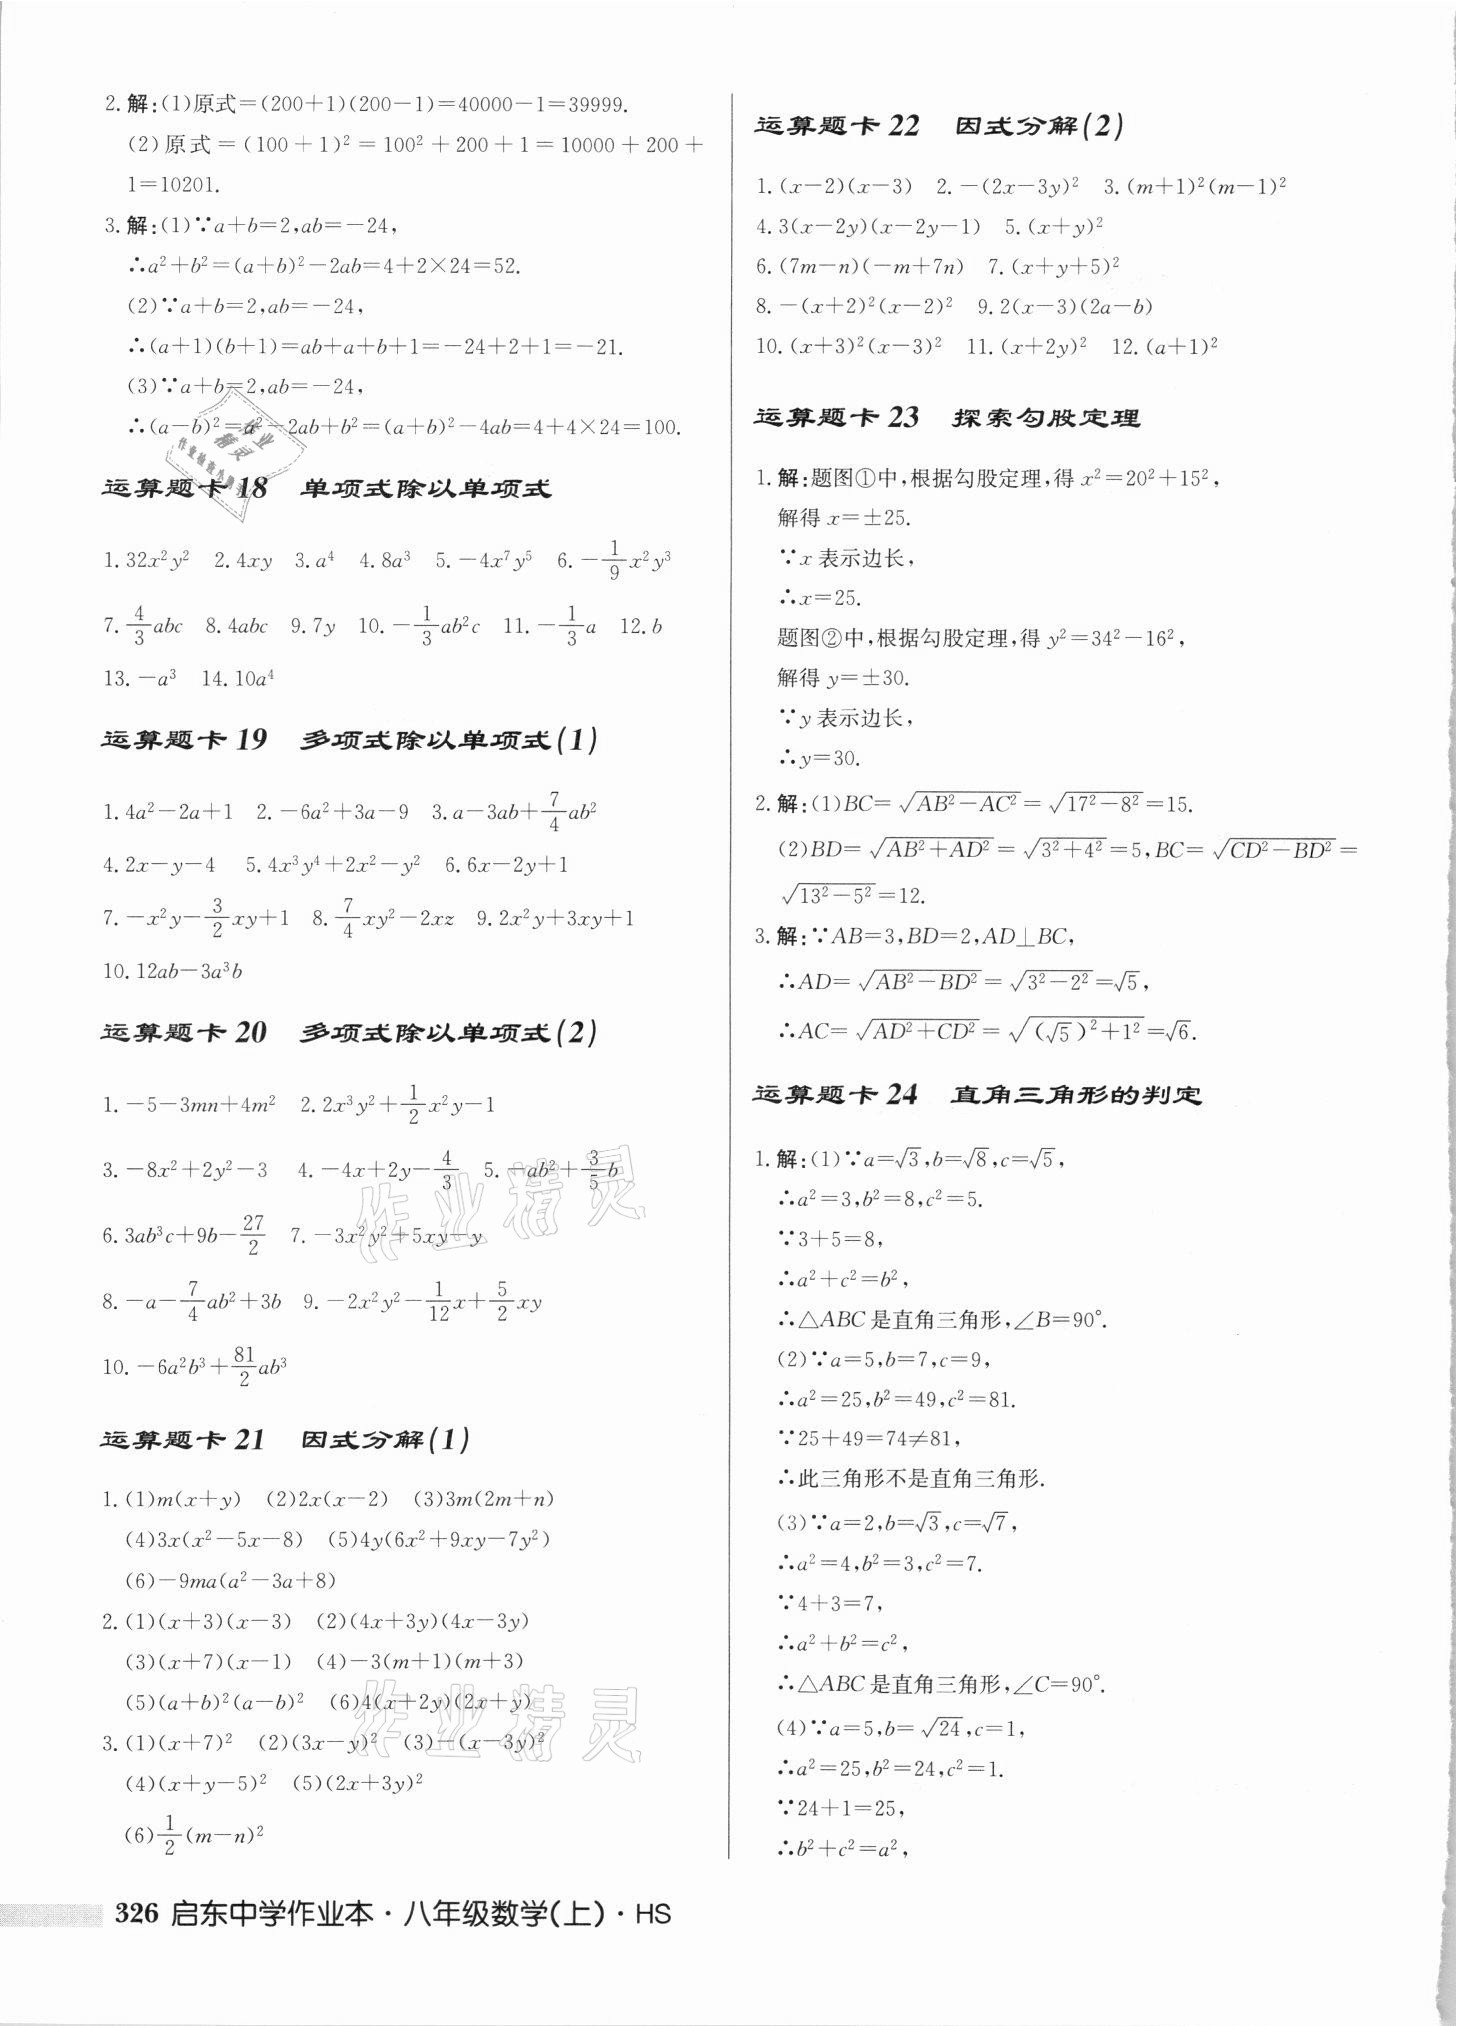 2.解:(1)原式=(200+1)(200-1)=40000-1=39999.
(2)原式=(100+1)²=100²+200+1=10000+200+
1=10201.
3.解:(1)∵a+b=2,ab=-24,
∴a²+b²=(a+b)²-2ab=4+2×24=52.
(2)∵a+b=2,ab=-24,
∴(a+1)(b+1)=ab+a+b+1=-24+2+1=-21.
(3)∵a+b=2,ab=-24,
∴(a-b)²=a²-2ab+b²=(a+b)²-4ab=4+4×24=100.
运算题卡18 单项式除以单项式
1.32x²y² 2.4xy 3.a⁴ 4.8a³ 5.-4x⁷y⁵ 6.-1/9x²y³
7.4/3abc 8.4abc 9.7y 10.-1/3ab²c 11.-1/3a 12.b
13.-a³ 14.10a⁴
运算题卡19 多项式除以单项式(1)
1.4a²-2a+1 2.-6a²+3a-9 3.a-3ab+7/4ab²
4.2x-y-4 5.4x³y⁴+2x²-y² 6.6x-2y+1
7.-x²y-3/2xy+1 8.7/4xy²-2xz 9.2x²y+3xy+1
10.12ab-3a³b
运算题卡20 多项式除以单项式(2)
1.-5-3mn+4m² 2.2x³y²+1/2x²y-1
3.-8x²+2y²-3 4.-4x+2y-4/3 5.-ab²+3/5b
6.3ab³c+9b-27/2 7.-3x²y²+5xy-y
8.-a-7/4ab²+3b 9.-2x²y²-1/12x+5/2xy
10.-6a²b³+81/2ab³
运算题卡21 因式分解(1)
1.(1)m(x+y) (2)2x(x-2) (3)3m(2m+n)
(4)3x(x²-5x-8) (5)4y(6x²+9xy-7y²)
(6)-9ma(a²-3a+8)
2.(1)(x+3)(x-3) (2)(4x+3y)(4x-3y)
(3)(x+7)(x-1) (4)-3(m+1)(m+3)
(5)(a+b)²(a-b)² (6)4(x+2y)(2x+y)
3.(1)(x+7)² (2)(3x-y)² (3)-(x-3y)²
(4)(x+y-5)² (5)(2x+3y)²
(6)1/2(m-n)²
326 启东中学作业本·八年级数学(上)·HS
运算题卡22 因式分解(2)
1.(x-2)(x-3) 2.-(2x-3y)² 3.(m+1)²(m-1)²
4.3(x-2y)(x-2y-1) 5.(x+y)²
6.(7m-n)(-m+7n) 7.(x+y+5)²
8.-(x+2)²(x-2)² 9.2(x-3)(2a-b)
10.(x+3)²(x-3)² 11.(x+2y)² 12.(a+1)²
运算题卡23 探索勾股定理
1.解:题图①中,根据勾股定理,得x²=20²+15²,
解得x=±25.
∵x表示边长,
∴x=25.
题图②中,根据勾股定理,得y²=34²-16²,
解得y=±30.
∵y表示边长,
∴y=30.
2.解:(1)BC=√(AB²-AC²)=√(17²-8²)=15.
(2)BD=√(AB²+AD²)=√(3²+4²)=5,BC=√(CD²-BD²)=
√(13²-5²)=12.
3.解:∵AB=3,BD=2,AD⊥BC,
∴AD=√(AB²-BD²)=√(3²-2²)=√5,
∴AC=√(AD²+CD²)=√((√5)²+1²)=√6.
运算题卡24 直角三角形的判定
1.解:(1)∵a=√3,b=√8,c=√5,
∴a²=3,b²=8,c²=5.
∵3+5=8,
∴a²+c²=b²,
∴△ABC是直角三角形,∠B=90°.
(2)∵a=5,b=7,c=9,
∴a²=25,b²=49,c²=81.
∵25+49=74≠81,
∴此三角形不是直角三角形.
(3)∵a=2,b=√3,c=√7,
∴a²=4,b²=3,c²=7.
∵4+3=7,
∴a²+b²=c²,
∴△ABC是直角三角形,∠C=90°.
(4)∵a=5,b=√24,c=1,
∴a²=25,b²=24,c²=1.
∵24+1=25,
∴b²+c²=a²,
作业精灵
作业精灵
作业精灵